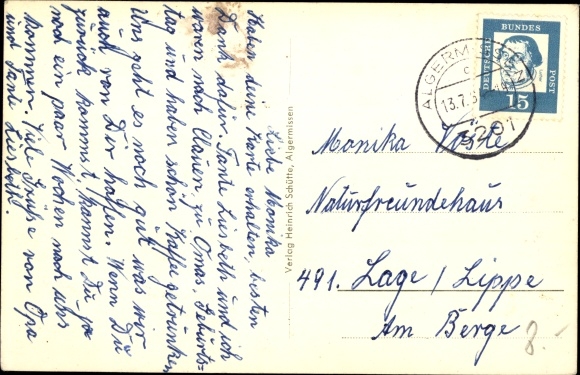 Liebe Monika
Haben deine Karte erhalten, besten
Dank dafür. Tante Lisbeth und ich
waren nach Clauen zu Omas. Geburts-
tag und haben schön Kaffe getrunken
Uns geht es noch gut was wir
auch von Dir hoffen. Wenn Du
zurück kommst, kannst Du ja
noch ein paar Wochen nach uns
kommen. Viele Grüße von Opa
und Tante Lisbeth.
Verlag Heinrich Schütte, Algermissen
DEUTSCHE BUNDES POST
15
ALGERMISSEN
13.7.
3201
Monika
Naturfreundehaus
491. Lage / Lippe
Am Berge
8.-